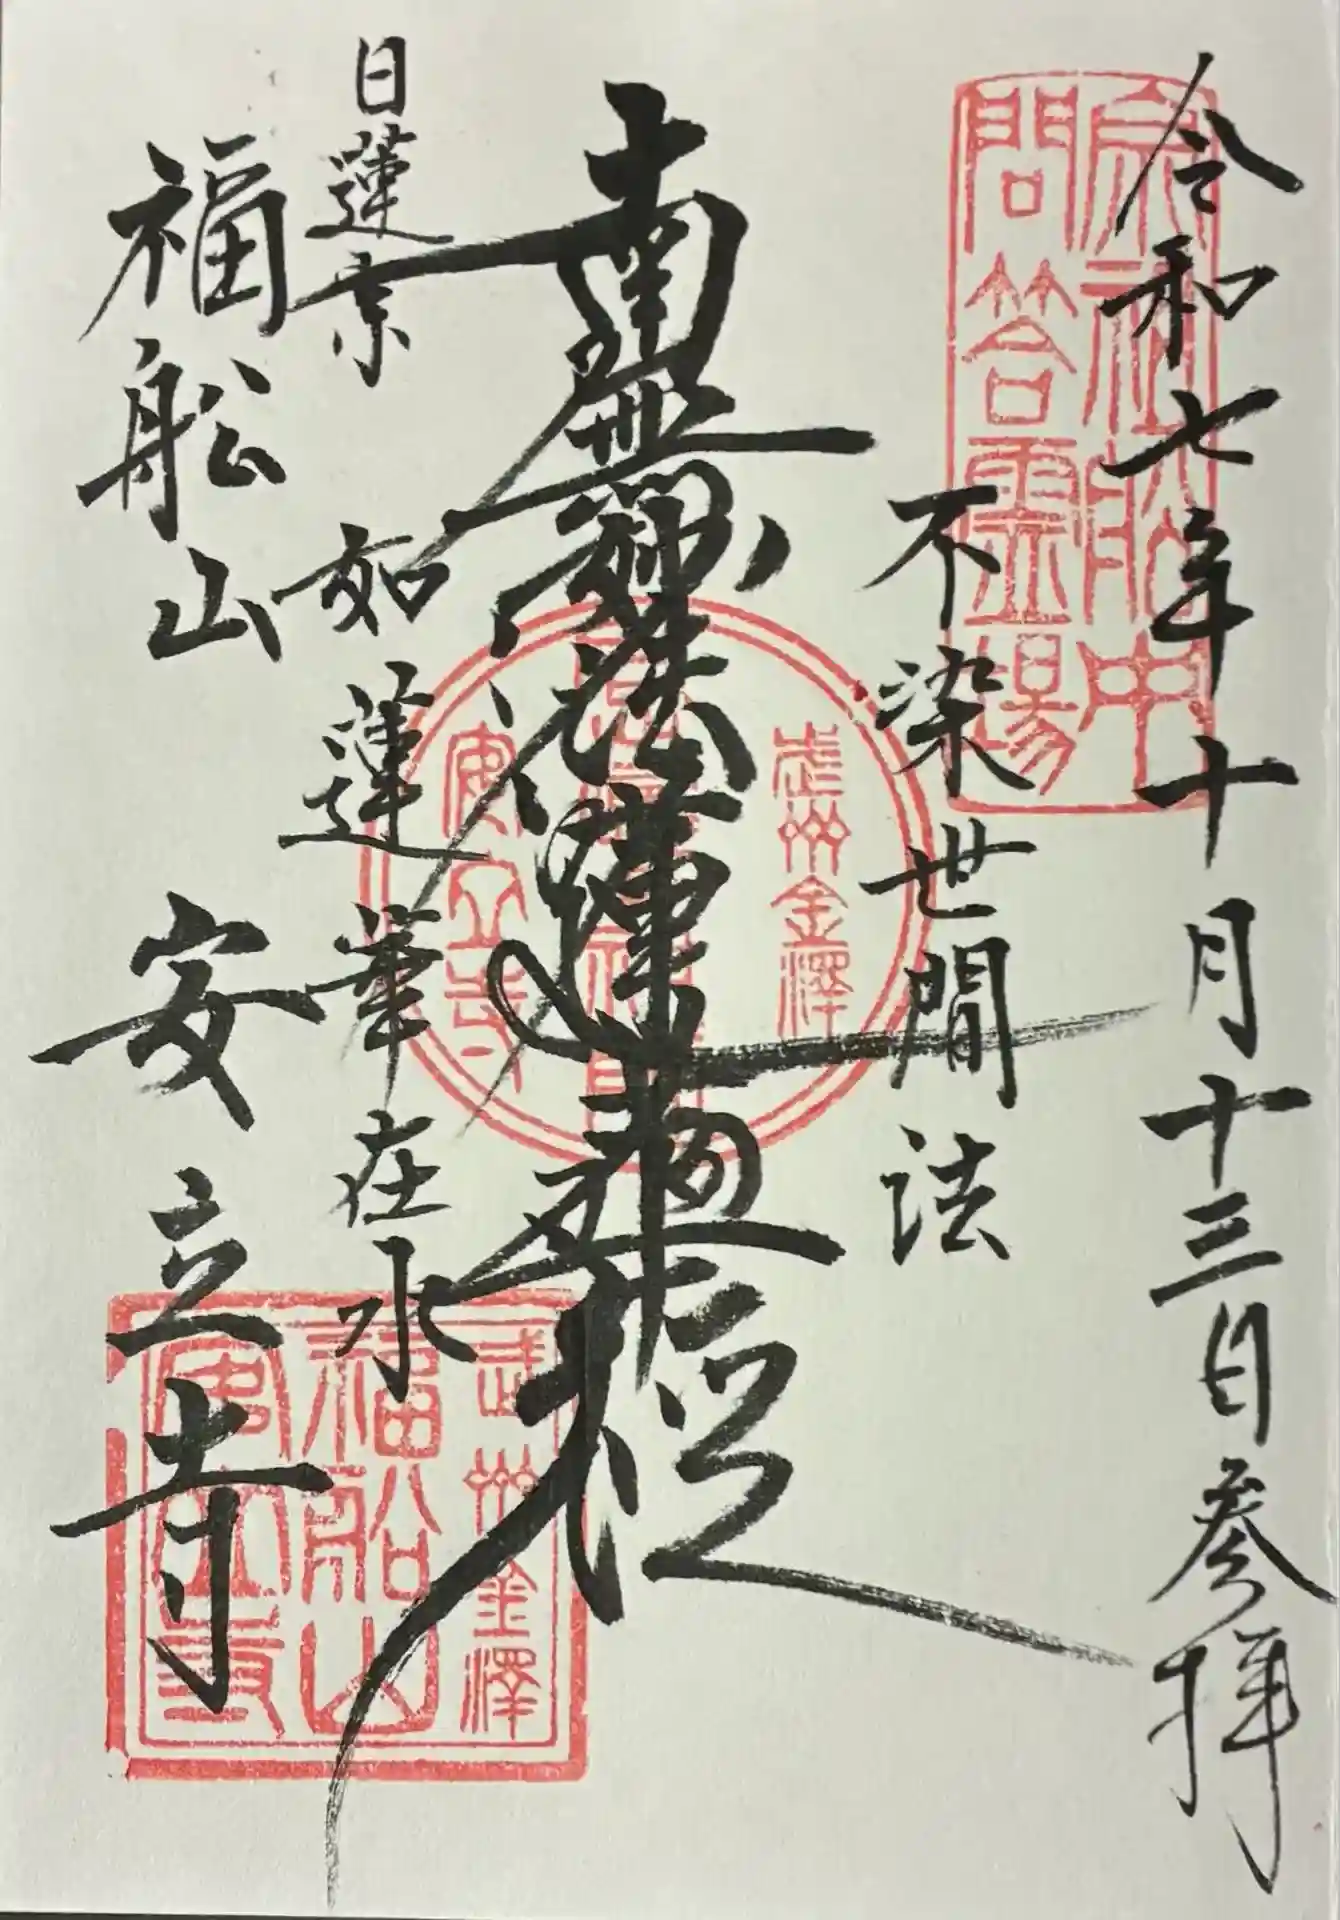 令和七年十月十三日参拝
宗祖船中
問答霊場
不染世間法
南無妙法蓮華経
武州金澤
安立寺
日蓮宗
如蓮華在水
福舩山 安立寺
武州金澤
福船山
安立寺